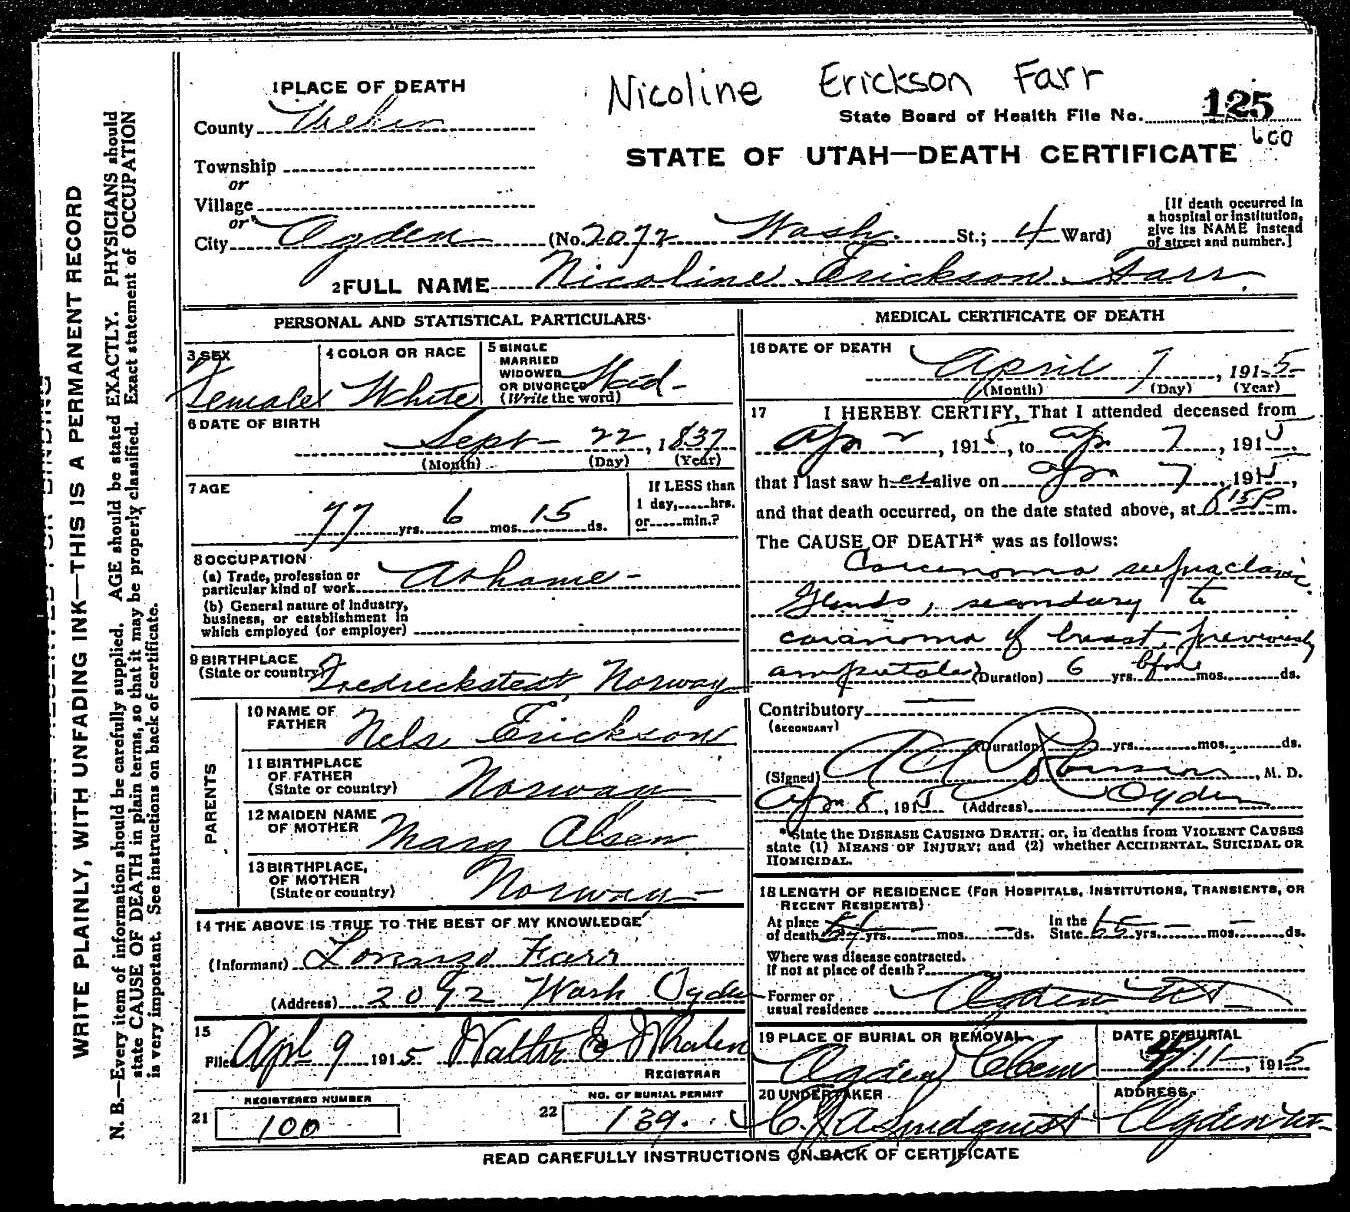 Nicoline Erickson Farr
1 PLACE OF DEATH
County Weber
State Board of Health File No. 125
600
STATE OF UTAH—DEATH CERTIFICATE
Township
or
Village
or
City Ogden (No. 2072 Wash. St.; 4 Ward)
[If death occurred in
a hospital or institution,
give its NAME instead
of street and number.]
2 FULL NAME Nicoline Erickson Farr.
PERSONAL AND STATISTICAL PARTICULARS
3 SEX
Female
4 COLOR OR RACE
White
5 SINGLE
MARRIED
WIDOWED
OR DIVORCED
(Write the word)
Wid-
6 DATE OF BIRTH
Sept- 22, 1837
(Month) (Day) (Year)
7 AGE
77 yrs. 6 mos. 15 ds.
If LESS than
1 day,......hrs.
or......min.?
8 OCCUPATION
(a) Trade, profession or
particular kind of work At home-
(b) General nature of Industry,
business, or establishment in
which employed (or employer)
9 BIRTHPLACE
(State or country) Fredreckstedt, Norway
PARENTS
10 NAME OF
FATHER Nels Erickson
11 BIRTHPLACE
OF FATHER
(State or country) Norway
12 MAIDEN NAME
OF MOTHER Mary Alsen
13 BIRTHPLACE,
OF MOTHER
(State or country) Norway-
14 THE ABOVE IS TRUE TO THE BEST OF MY KNOWLEDGE
(Informant) Lorenzo Farr
(Address) 2092 Wash Ogden
15
Filed Apl 9 1915 Walter E Whalen
REGISTRAR
21 REGISTERED NUMBER
100
22 NO. OF BURIAL PERMIT
139.
MEDICAL CERTIFICATE OF DEATH
16 DATE OF DEATH
April 7, 1915
(Month) (Day) (Year)
17 I HEREBY CERTIFY, That I attended deceased from
Apr 2, 1915, to Ap 7, 1915,
that I last saw her alive on Apr 7, 1915,
and that death occurred, on the date stated above, at 815P m.
The CAUSE OF DEATH* was as follows:
Carcinoma supraclavic
Glands, secondary to
carcinoma of breast, previously
amputated (Duration) 6 yrs. mos. ds.
Contributory
(SECONDARY)
(Duration) yrs. mos. ds.
(Signed) Robinson, M. D.
Apr 8, 1915 (Address) Ogden
*State the DISEASE CAUSING DEATH, or, in deaths from VIOLENT CAUSES
state (1) MEANS OF INJURY; and (2) whether ACCIDENTAL, SUICIDAL OR
HOMICIDAL.
18 LENGTH OF RESIDENCE (FOR HOSPITALS, INSTITUTIONS, TRANSIENTS, OR
RECENT RESIDENTS)
At place
of death yrs. — mos. — ds.
In the
State yrs. — mos. — ds.
Where was disease contracted.
If not at place of death?
Former or
usual residence Ogden Ut
19 PLACE OF BURIAL OR REMOVAL
Ogden Cem
DATE OF BURIAL
4/11, 1915
20 UNDERTAKER
C. J. A. Lindquist
ADDRESS
Ogden Ut-
READ CAREFULLY INSTRUCTIONS ON BACK OF CERTIFICATE
WRITE PLAINLY, WITH UNFADING INK—THIS IS A PERMANENT RECORD
N. B.—Every item of information should be carefully supplied. AGE should be stated EXACTLY. PHYSICIANS should
state CAUSE OF DEATH in plain terms, so that it may be properly classified. Exact statement of OCCUPATION
is very important. See instructions on back of certificate.